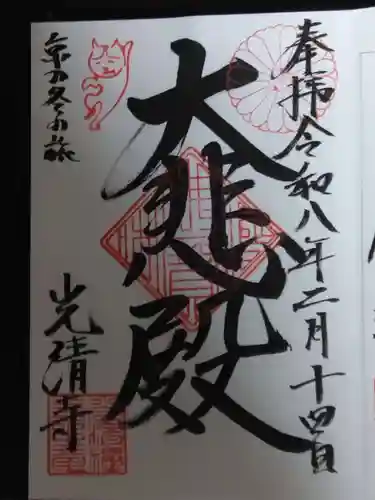 奉拝令和八年二月十四日
大悲殿
京の冬の旅
光清寺